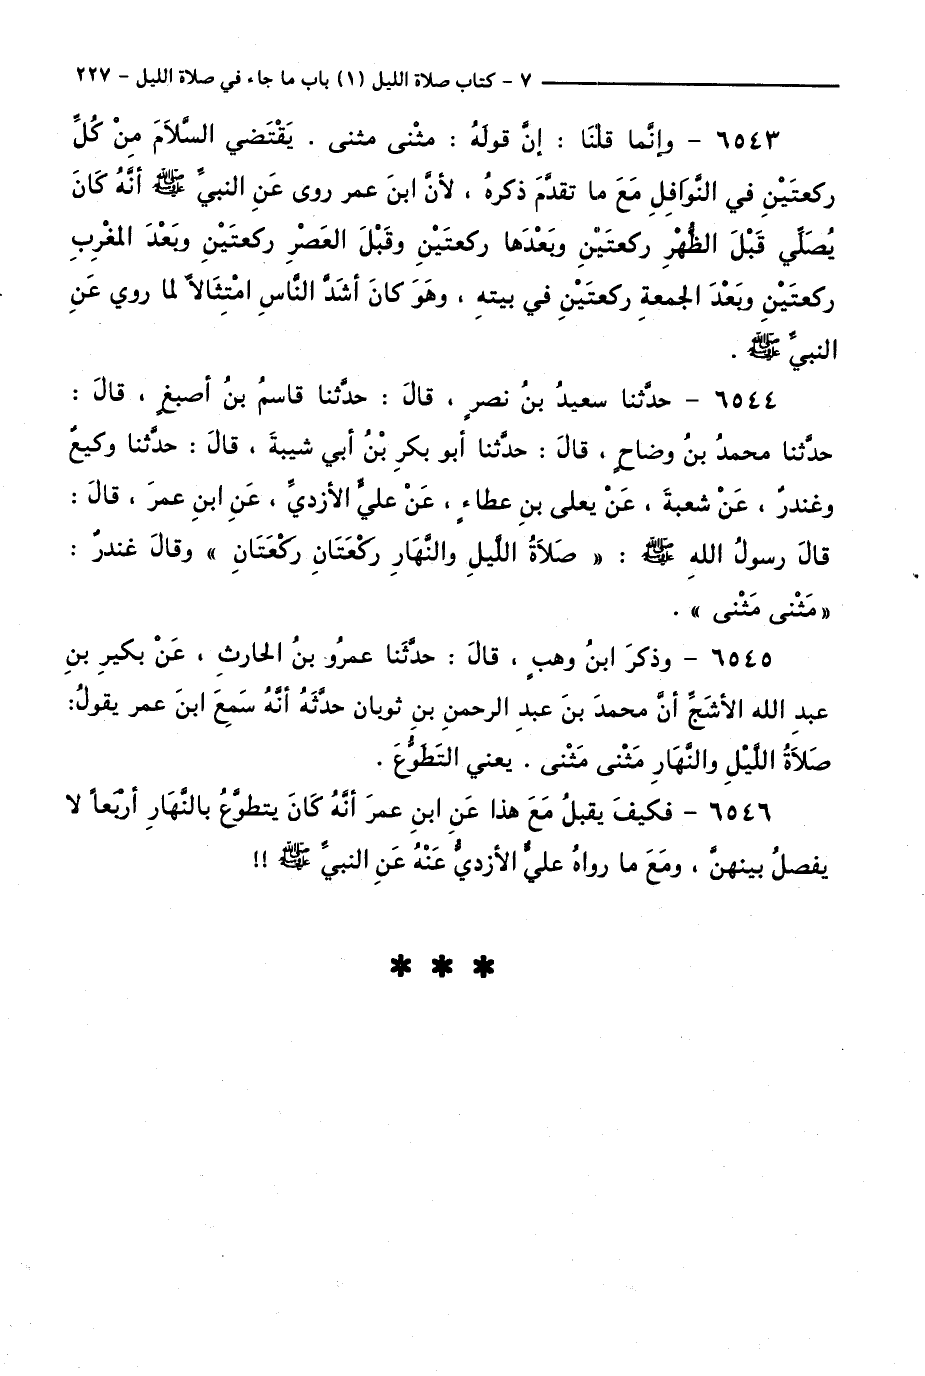 ٧ - كتاب صلاة الليل (١) باب ما جاء في صلاة الليل - ٢٢٧
٦٥٤٣ - وإنَّما قلْنَا : إنَّ قولَهُ : مثْنى مثنى . يَقْتَضي السَّلاَمَ مِنْ كُلِّ
ركعتَيْنِ في النَّوَافلِ مَعَ ما تقدَّمَ ذكرهُ ، لأنَّ ابنَ عمر روى عَنِ النبيِّ ﷺ أنَّهُ كَانَ
يُصَلِّي قَبْلَ الظُّهْرِ ركعتَيْنِ وبَعْدَها ركعتَيْنِ وقَبْلَ العَصْرِ ركعتَيْنِ وبَعْدَ المغْرِبِ
ركعتَيْنِ وبَعْدَ الجمعةِ ركعتَيْنِ في بيتهِ ، وهَوَ كانَ أشدَّ النَّاسِ امْتِثَالاً لما روي عَنِ
النبيِّ ﷺ .
٦٥٤٤ - حدَّثنا سعيدُ بنُ نصرٍ ، قالَ : حدَّثنا قاسمُ بنُ أصبغٍ ، قالَ :
حدَّثنا محمدُ بنُ وضاحٍ ، قالَ : حدَّثنا أبو بكرِ بْنُ أبي شيبةَ ، قالَ : حدَّثنا وكيعٌ
وغندرٌ ، عَنْ شعبةَ ، عَنْ يعلى بنِ عطاءٍ ، عَنْ عليٍّ الأزديِّ ، عَنِ ابنِ عمرَ ، قالَ :
قالَ رسولُ اللهِ ﷺ : « صَلاَةُ اللَّيلِ والنَّهارِ ركْعَتَانِ ركْعَتَانِ » وقالَ غندرٌ :
« مَثْنى مَثْنى » .
٦٥٤٥ - وذكرَ ابنُ وهبٍ ، قالَ : حدَّثَنا عمرُو بنُ الحارثِ ، عَنْ بكيرِ بنِ
عبدِ الله الأشجِّ أنَّ محمدَ بنَ عبدِ الرحمنِ بنِ ثوبان حدَّثَهُ أنَّهُ سَمِعَ ابنَ عمر يقولُ:
صَلاَةُ اللَّيْلِ والنَّهارِ مَثْنى مَثْنى . يعني التَطَوُّعَ .
٦٥٤٦ - فكيفَ يقبلُ مَعَ هذا عَنِ ابنِ عمرَ أنَّهُ كَانَ يتطوَّعُ بالنَّهارِ أرْبَعاً لا
يفصلُ بينهنَّ ، ومَعَ ما رواهُ عليٌّ الأزديُّ عَنْهُ عَنِ النبيِّ ﷺ !!
* * *